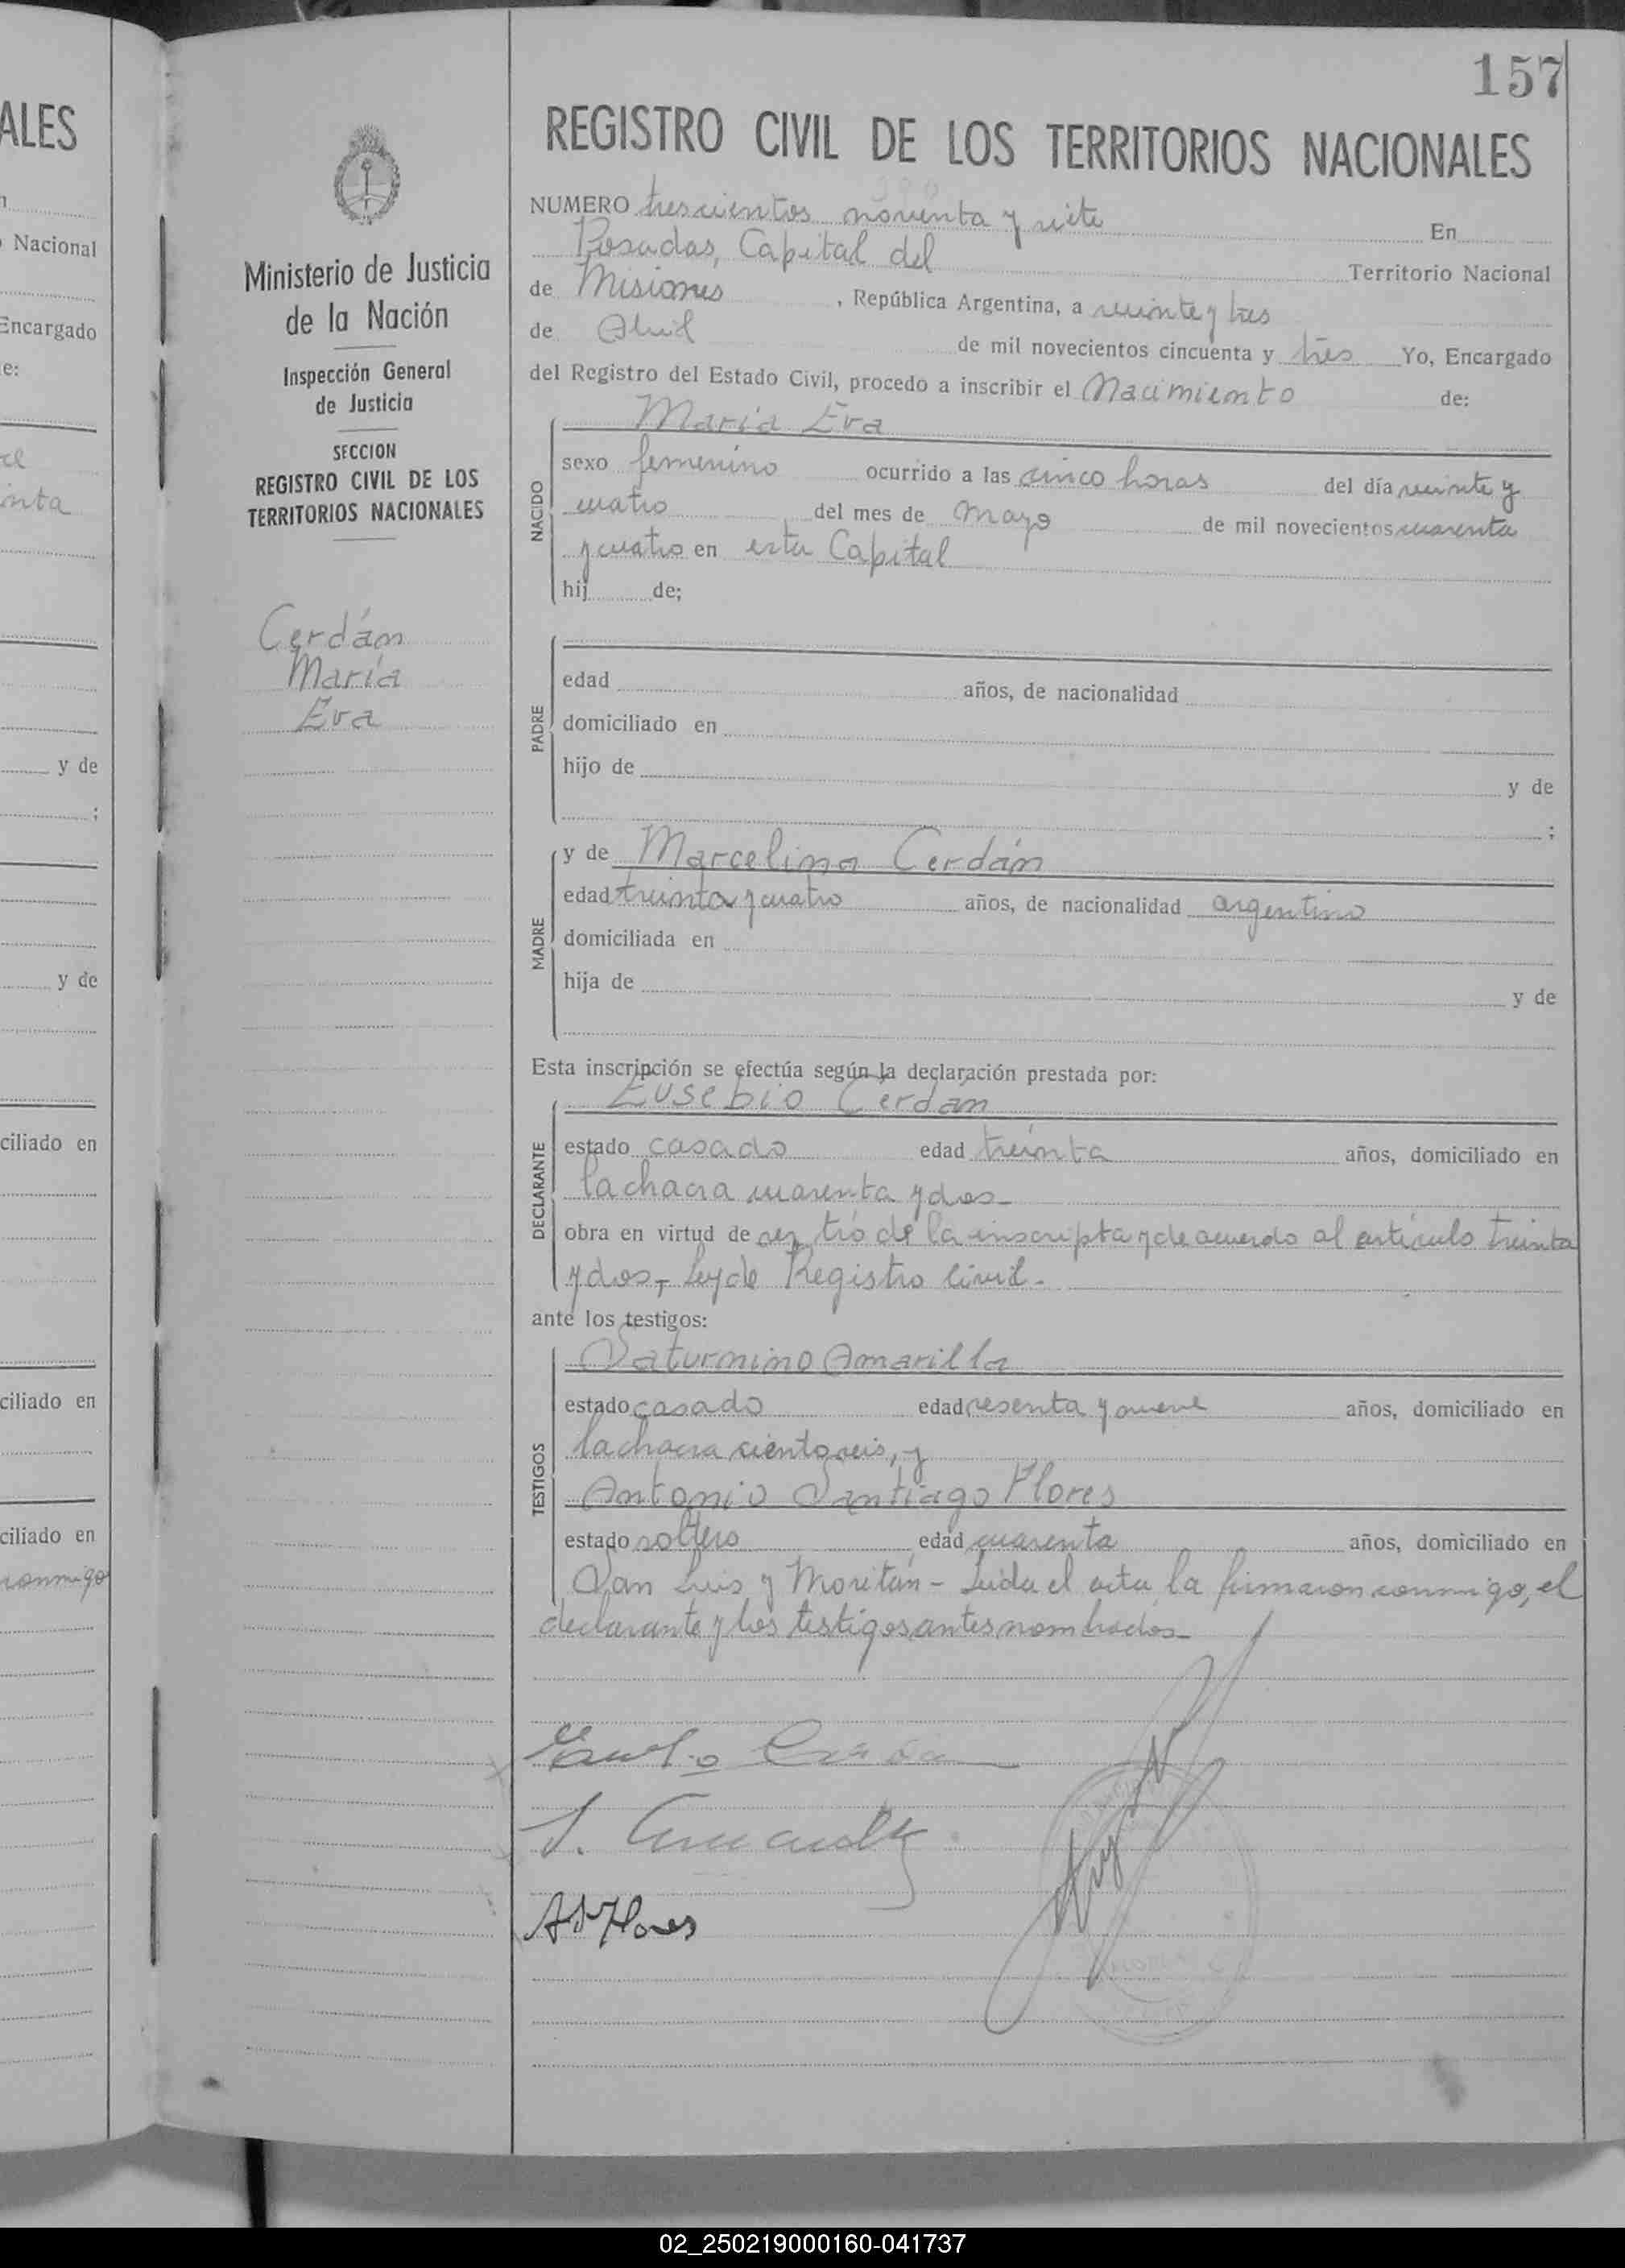 157
REGISTRO CIVIL DE LOS TERRITORIOS NACIONALES
NUMERO trescientos noventa y siete En
Posadas, Capital del Territorio Nacional
de Misiones, República Argentina, a veinte y tres
de Abril de mil novecientos cincuenta y tres Yo, Encargado
del Registro del Estado Civil, procedo a inscribir el Nacimiento de:
NACIDO
María Eva
sexo femenino ocurrido a las cinco horas del día veinte y
cuatro del mes de Mayo de mil novecientos cuarenta
y cuatro en esta Capital
hij de;
PADRE
edad años, de nacionalidad
domiciliado en
hijo de y de
;
MADRE
y de Marcelina Cerdán
edad treinta y cuatro años, de nacionalidad argentina
domiciliada en
hija de y de
Esta inscripción se efectúa según la declaración prestada por:
DECLARANTE
Eusebio Cerdán
estado casado edad treinta años, domiciliado en
la chacra cuarenta y dos-
obra en virtud de ser tío de la inscripta y de acuerdo al artículo treinta
y dos,- Ley de Registro Civil.-
ante los testigos:
TESTIGOS
Saturnino Amarilla
estado casado edad sesenta y nueve años, domiciliado en
la chacra ciento seis, y
Antonio Santiago Flores
estado soltero edad cuarenta años, domiciliado en
San Luis y Moritán - Leida el acta, la firmaron conmigo, el
declarante y los testigos antes nombrados-
A S Flores
Ministerio de Justicia
de la Nación
Inspección General
de Justicia
SECCION
REGISTRO CIVIL DE LOS
TERRITORIOS NACIONALES
Cerdán
María
Eva
ALES
Nacional
Encargado
e:
inta
y de
;
y de
ciliado en
ciliado en
ciliado en
conmigo
02_250219000160-041737